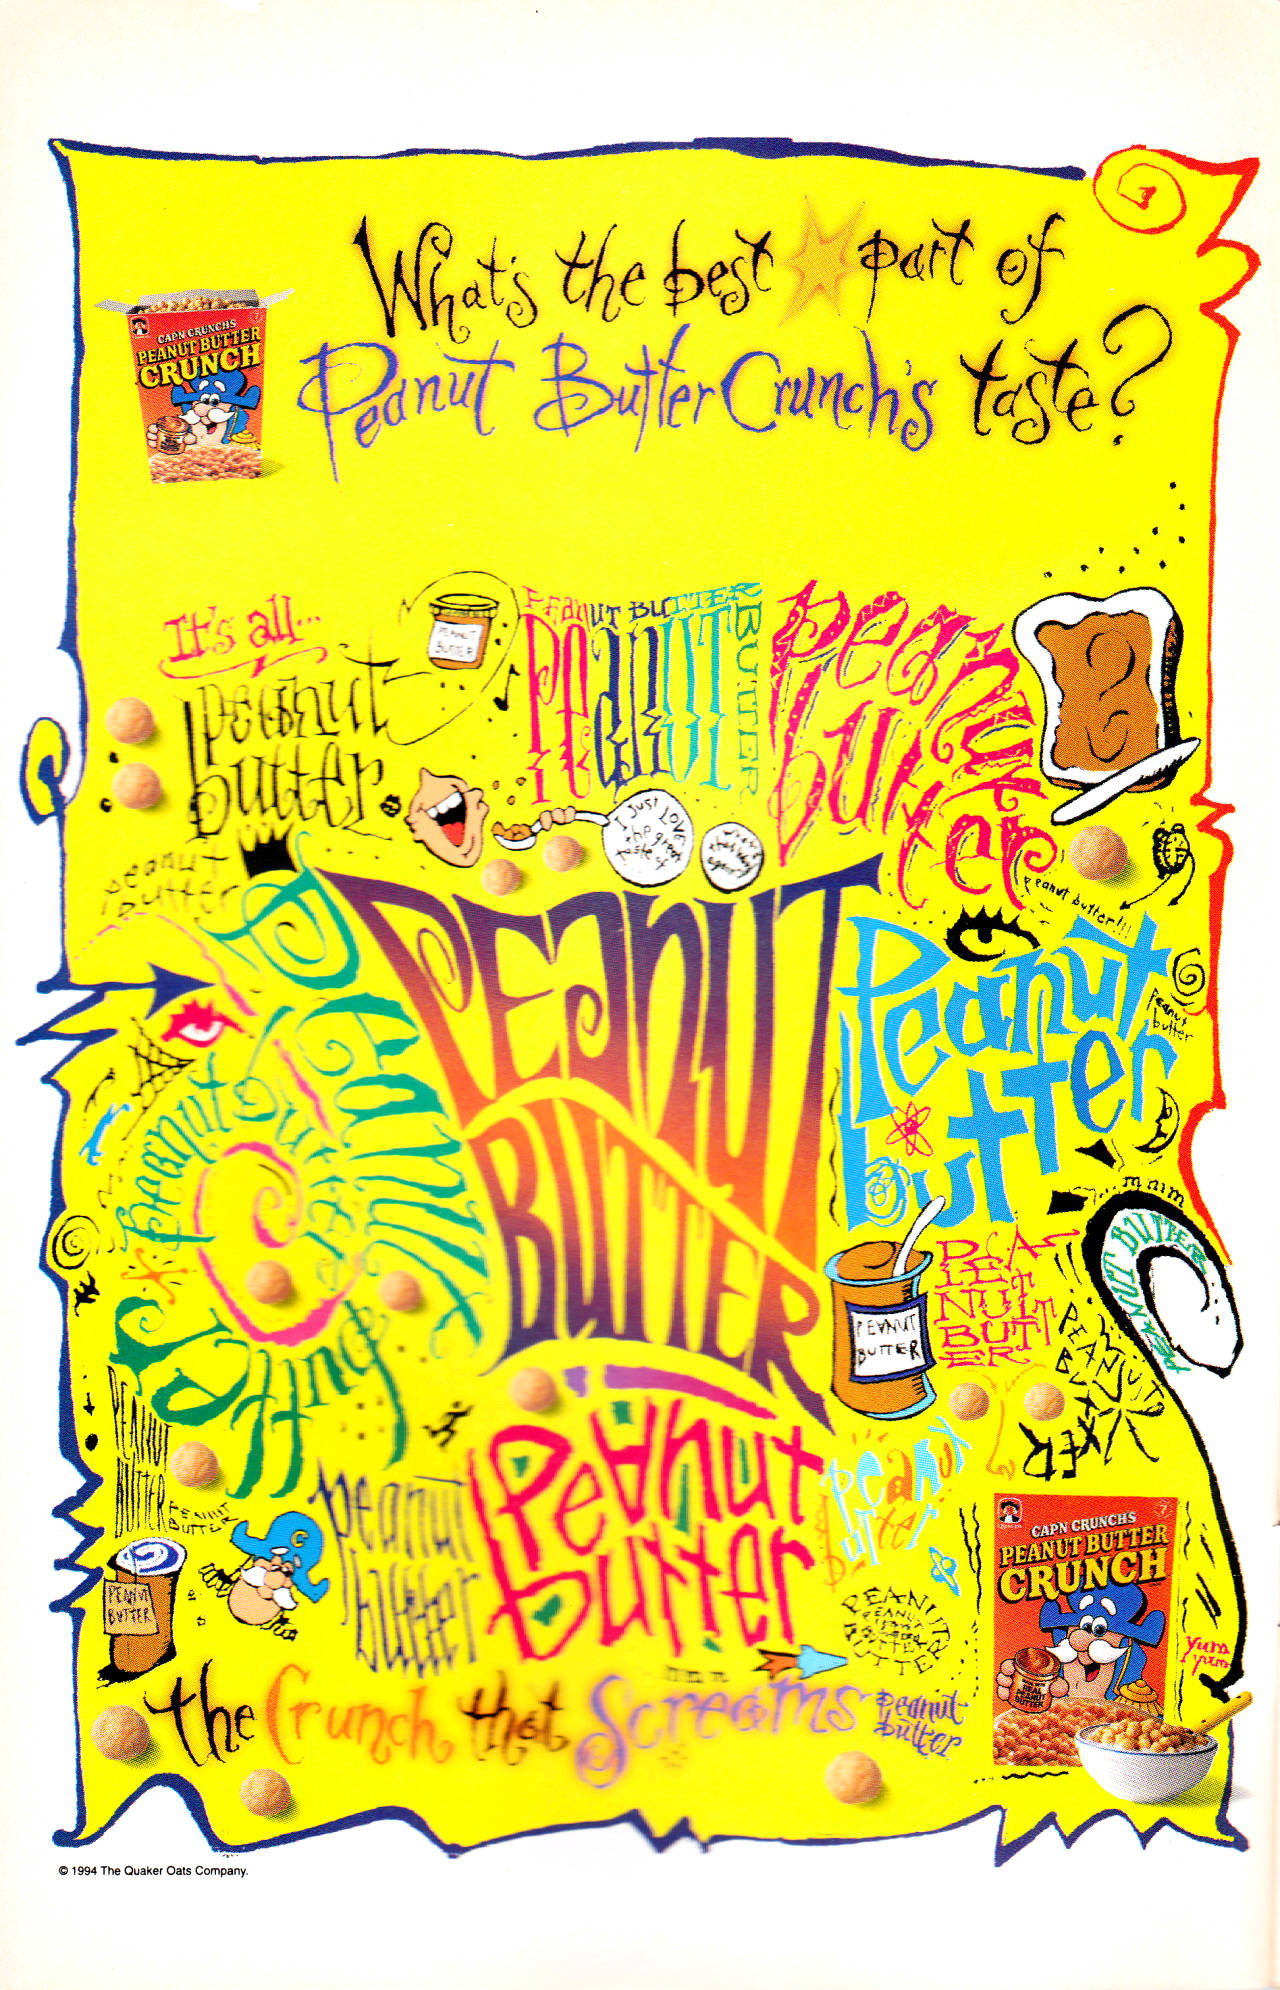 What's the best part of
Peanut Butter Crunch's taste?
CAP'N CRUNCH'S
PEANUT BUTTER
CRUNCH
It's all...
peanut
butter
PEANUT
BUTTER
PEANUT BUTTER
PEANUT
BUTTER
peanut
butter
I JUST LOVE
the great
taste of
peanut
butter
peanut butter!!!
PEANUT
BUTTER
Peanut
butter
peanut
butter
Peanut
butter
peanut
m mm
PEANUT BUTTER
PEANUT
BUTTER
PEA-
NUT
BUTT
ER
PEANUT
BUTTER
PEANUT
BUTTER
PEANUT
BUTTER
peanut
butter
Peanut
butter
peanut
butter
PEANUT
BUTTER
PEANUT
BUTTER
C
Quaker
CAP'N CRUNCH'S
PEANUT BUTTER
CRUNCH
REAL
PEANUT
BUTTER
yum
yum
the Crunch that Screams
peanut
butter
© 1994 The Quaker Oats Company.